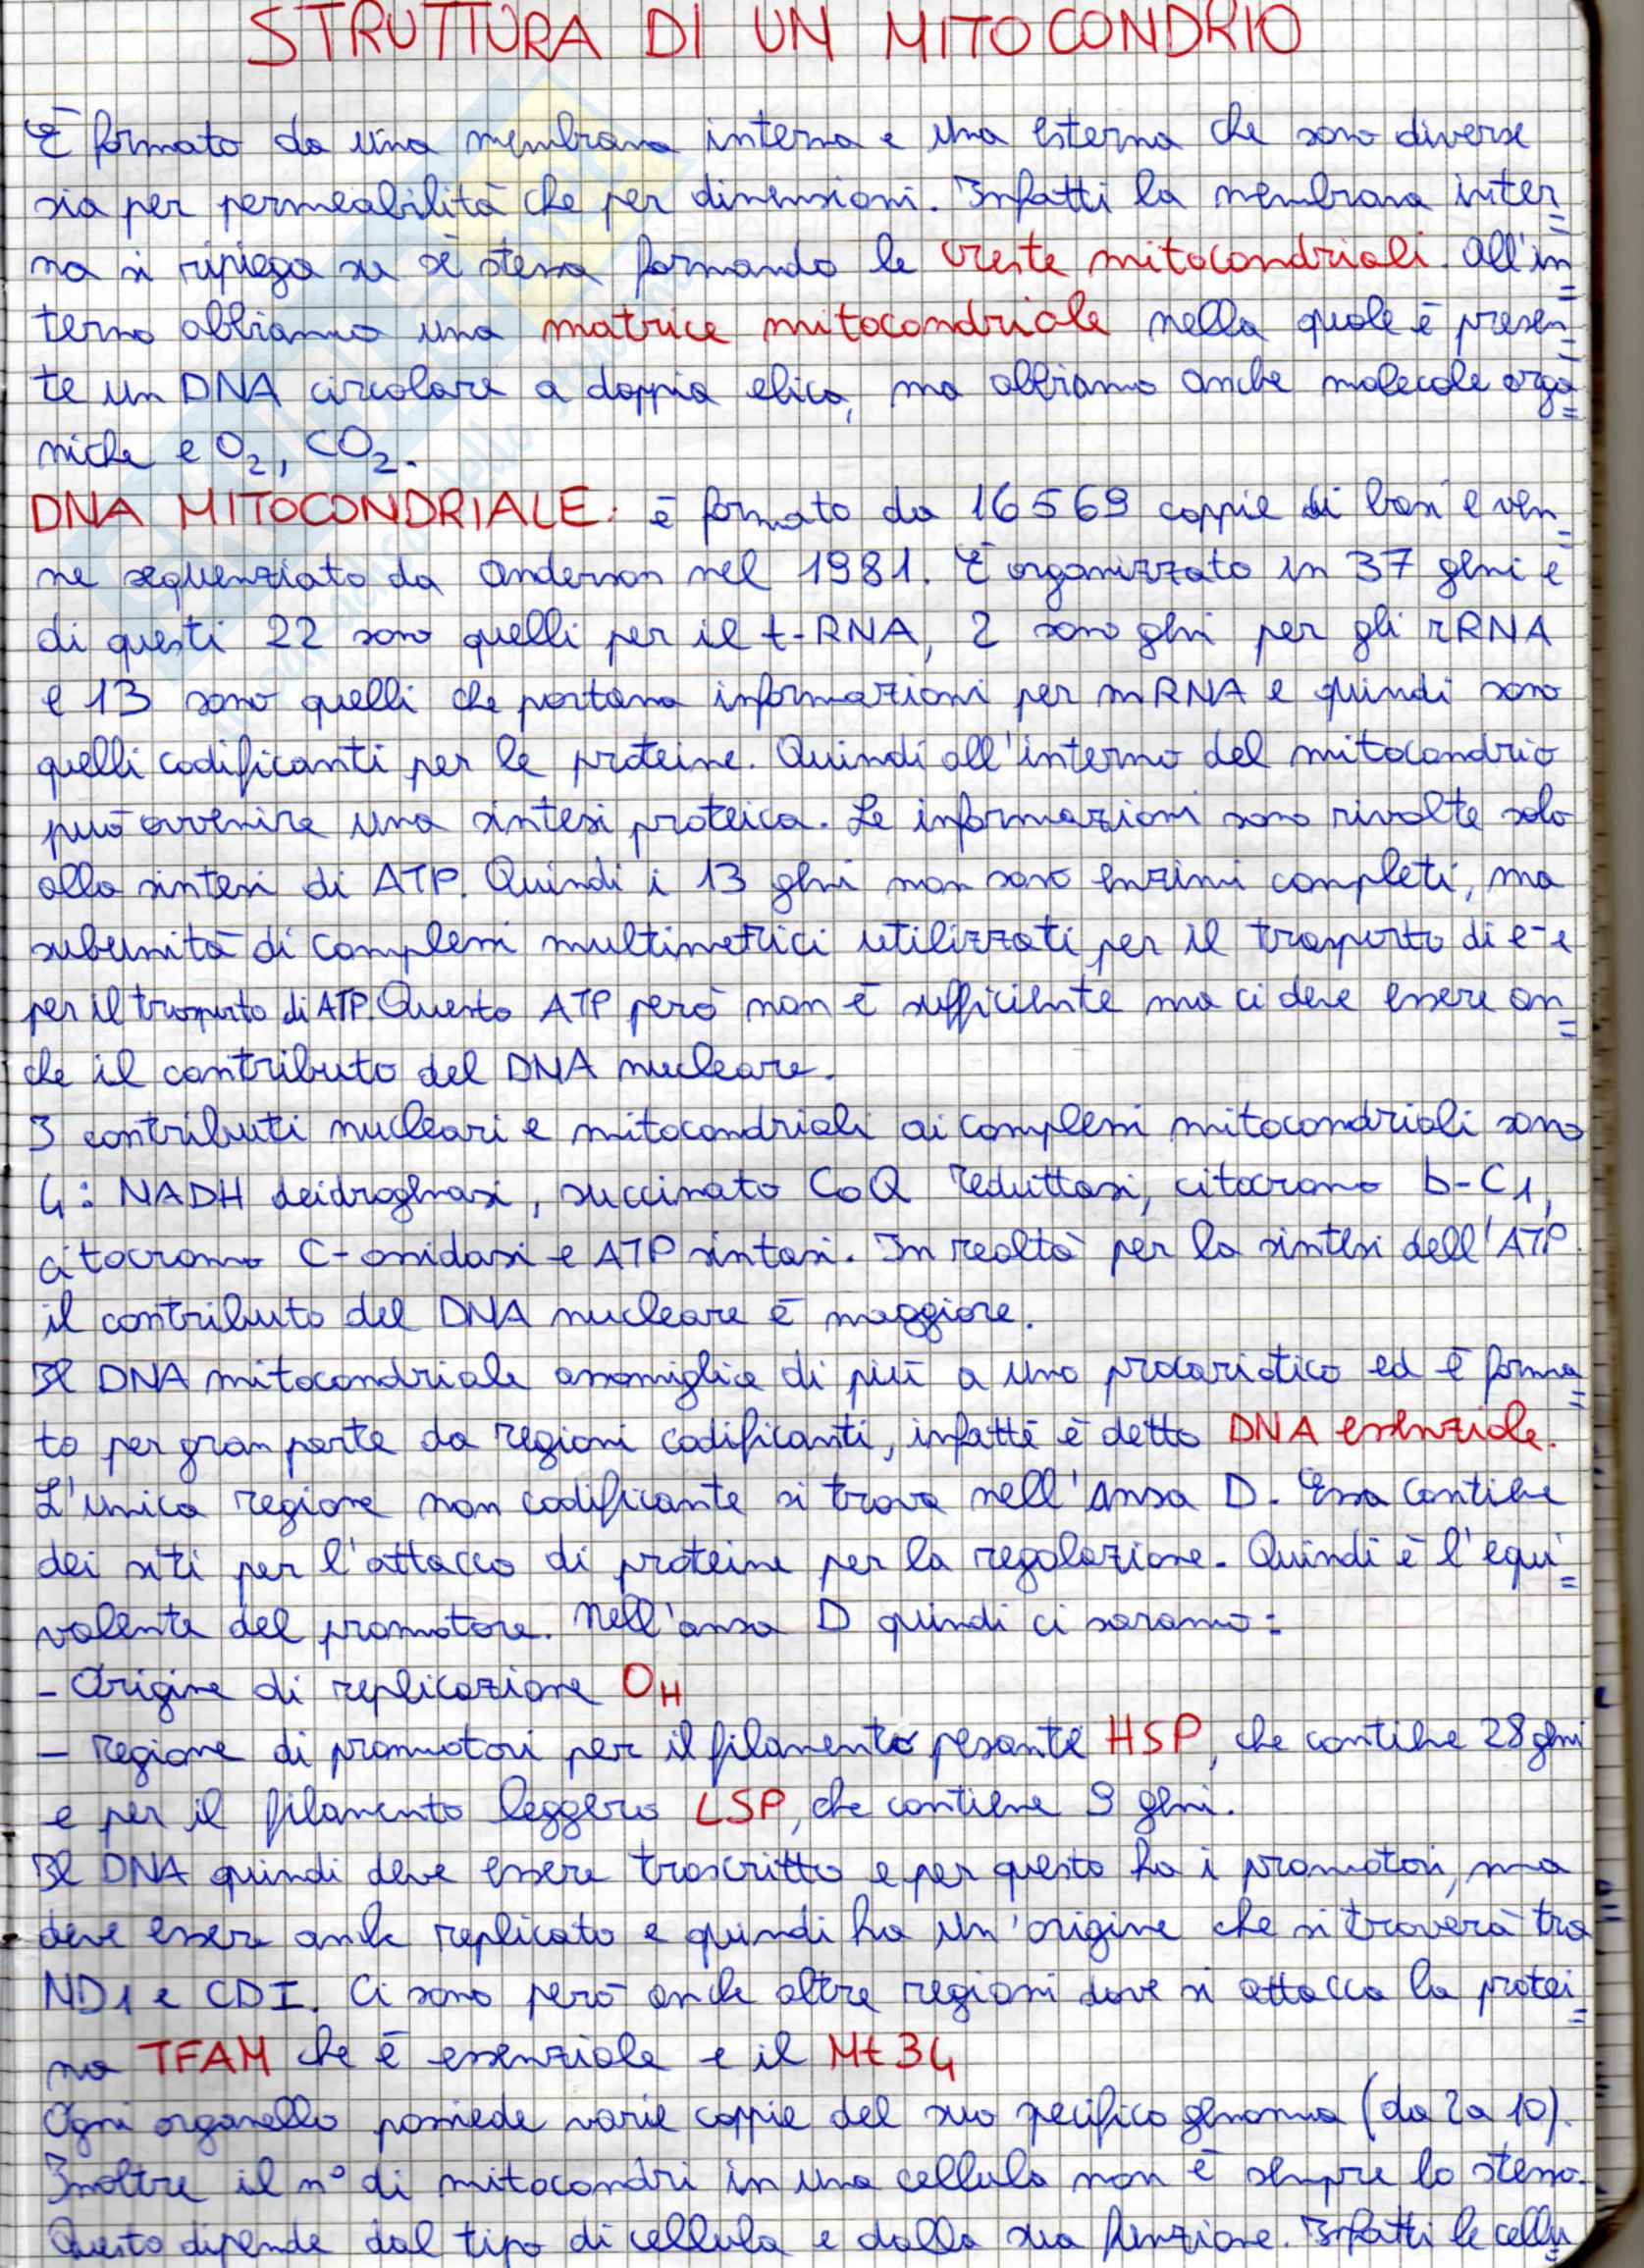 STRUTTURA DI UN MITOCONDRIO
È formato da una membrana interna e una esterna che sono diverse
sia per permeabilità che per dimensioni. Infatti la membrana inter=
na si ripiega su sè stessa formando le creste mitocondriali. All'in=
terno abbiamo una matrice mitocondriale nella quale è presen=
te un DNA circolare a doppia elica, ma abbiamo anche molecole orga=
niche e O2, CO2.
DNA MITOCONDRIALE: è formato da 16569 coppie di basi e ven=
ne sequenziato da Anderson nel 1981. È organizzato in 37 geni e
di questi 22 sono quelli per il t-RNA, 2 sono geni per gli rRNA
e 13 sono quelli che portano informazioni per mRNA e quindi sono
quelli codificanti per le proteine. Quindi all'interno del mitocondrio
può avvenire una sintesi proteica. Le informazioni sono rivolte solo
alla sintesi di ATP. Quindi i 13 geni non sono enzimi completi, ma
subunità di complessi multimetrici utilizzati per il trasporto di e- e
per il trasporto di ATP. Questo ATP però non è sufficiente ma ci deve essere an=
che il contributo del DNA nucleare.
I contributi nucleari e mitocondriali ai complessi mitocondriali sono
4: NADH deidrogenasi, succinato CoQ reduttasi, citocromo b-C1,
citocromo C-ossidasi e ATP sintasi. In realtà per la sintesi dell'ATP
il contributo del DNA nucleare è maggiore.
Il DNA mitocondriale assomiglia di più a uno procariotico ed è forma=
to per gran parte da regioni codificanti, infatti è detto DNA essenziale.
L'unica regione non codificante si trova nell'ansa D. Essa contiene
dei siti per l'attacco di proteine per la regolazione. Quindi è l'equi=
valente del promotore. Nell'ansa D quindi ci saranno:
- Origine di replicazione OH
- regione di promotori per il filamento pesante HSP, che contiene 28 geni
e per il filamento leggero LSP, che contiene 9 geni.
Il DNA quindi deve essere trascritto e per questo ha i promotori, ma
deve essere anche replicato e quindi ha un'origine che si troverà tra
ND1 e CDI. Ci sono però anche altre regioni dove si attacca la protei=
na TFAM che è essenziale e il Mt34
Ogni organello possiede varie coppie del suo specifico genoma (da 2 a 10).
Inoltre il n° di mitocondri in una cellula non è sempre lo stesso.
Questo dipende dal tipo di cellula e dalla sua funzione. Infatti le cellu=